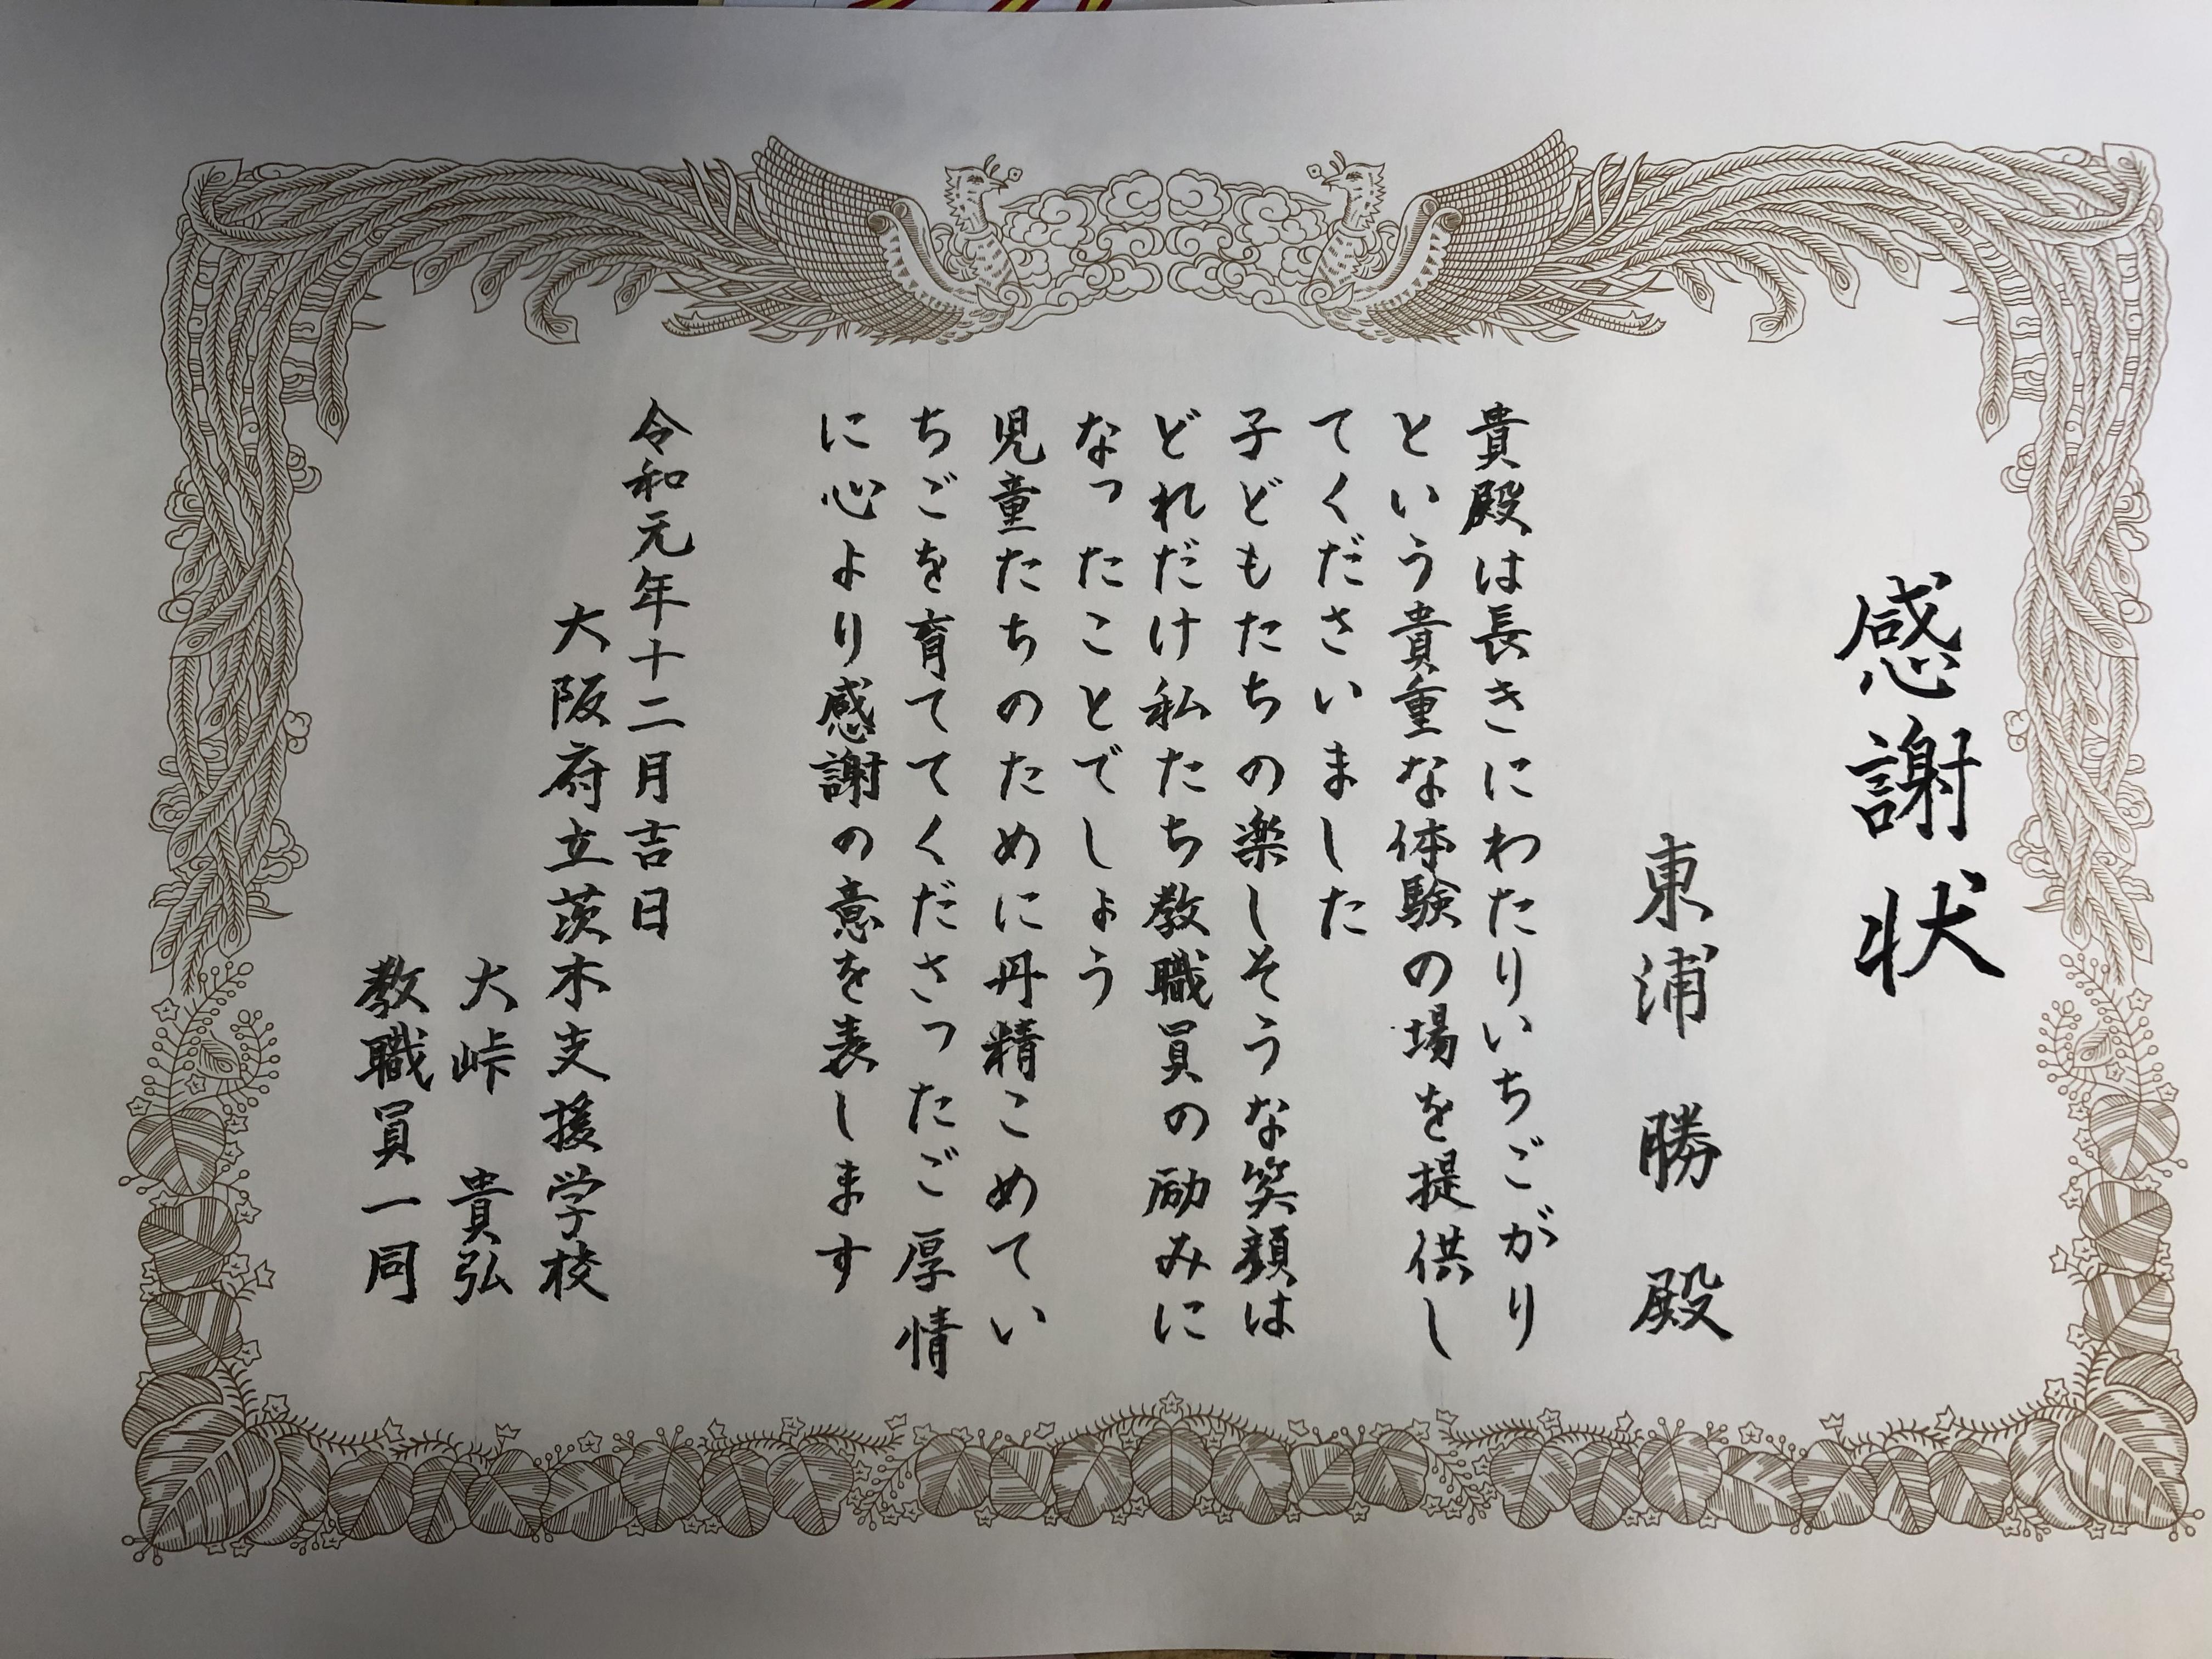 感謝状
東浦 勝 殿
貴殿は長きにわたりいちごがり
という貴重な体験の場を提供し
てくださいました
子どもたちの楽しそうな笑顔は
どれだけ私たち教職員の励みに
なったことでしょう
児童たちのために丹精こめてい
ちごを育ててくださったご厚情
に心より感謝の意を表します
令和元年十二月吉日
大阪府立茨木支援学校
大峠 貴弘
教職員一同